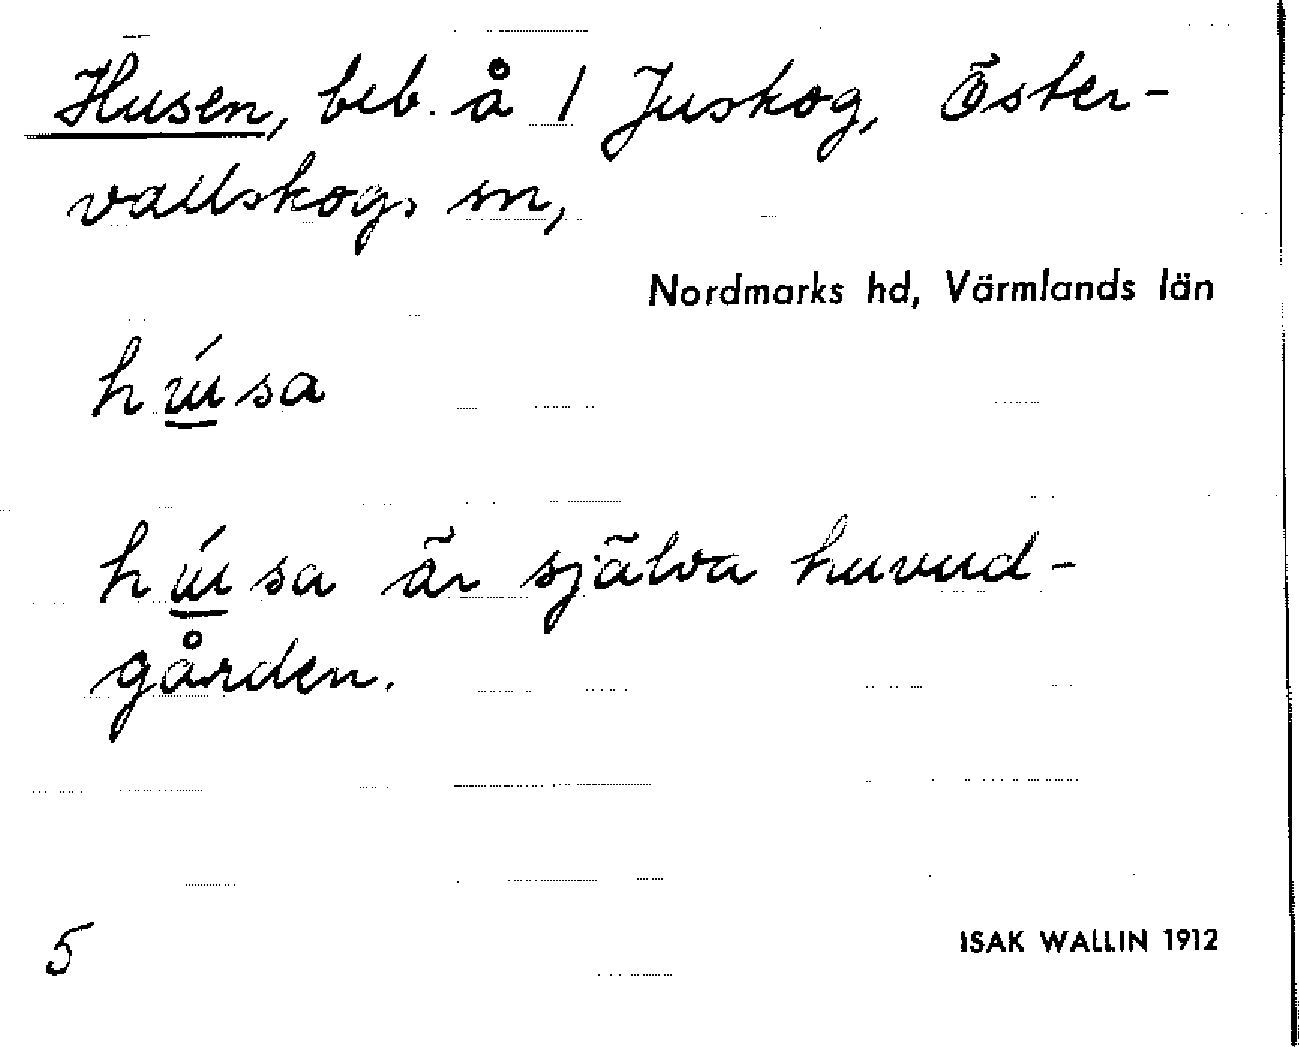 Husen, beb. å 1 Juskog, Öster-
vallskogs sn,
Nordmarks hd, Värmlands län
húsa
húsa är själva huvud-
gården.
5
ISAK WALLIN 1912